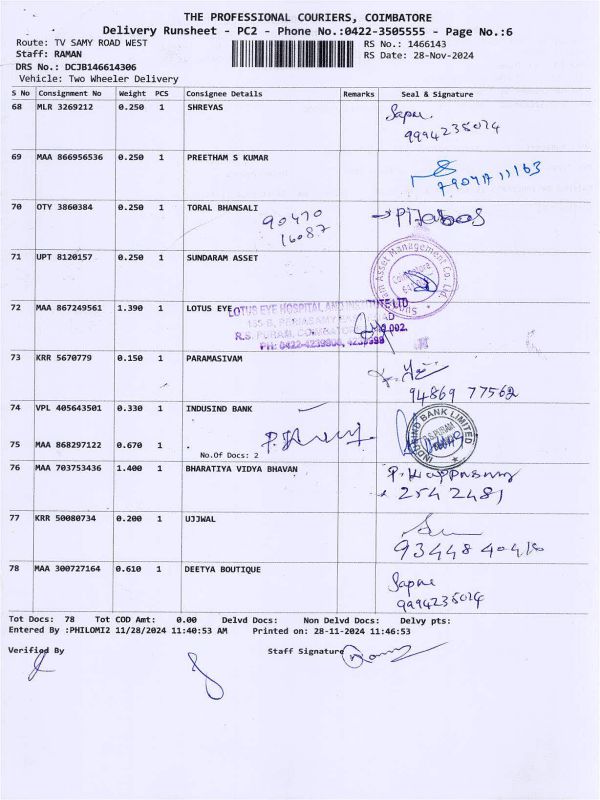 THE PROFESSIONAL COURIERS, COIMBATORE
Delivery Runsheet - PC2 - Phone No.:0422-3505555 - Page No.:6
Route: TV SAMY ROAD WEST RS No.: 1466143
Staff: RAMAN RS Date: 28-Nov-2024
DRS No.: DCJB146614306
Vehicle: Two Wheeler Delivery
S No Consignment No Weight PCS Consignee Details Remarks Seal & Signature
68 MLR 3269212 0.250 1 SHREYAS
9994235024
69 MAA 866956536 0.250 1 PREETHAM S KUMAR
70 OTY 3860384 0.250 1 TORAL BHANSALI
90470
16087
71 UPT 8120157 0.250 1 SUNDARAM ASSET
Sundaram Asset Management Co. Ltd.
72 MAA 867249561 1.390 1 LOTUS EYE
LOTUS EYE HOSPITAL AND INSTITUTE LTD
R.S. PURAM, COIMBATORE
PH: 0422-4239900, 4239999
73 KRR 5670779 0.150 1 PARAMASIVAM
94869 77562
74 VPL 405643501 0.330 1 INDUSIND BANK
INDUSIND BANK LIMITED
R.S. PURAM
75 MAA 868297122 0.670 1
No.Of Docs: 2
76 MAA 703753436 1.400 1 BHARATIYA VIDYA BHAVAN
P. Karppasamy
2542481
77 KRR 50080734 0.200 1 UJJWAL
78 MAA 300727164 0.610 1 DEETYA BOUTIQUE
9994235024
Tot Docs: 78 Tot COD Amt: 0.00 Delvd Docs: Non Delvd Docs: Delvy pts:
Entered By :PHILOMI2 11/28/2024 11:40:53 AM Printed on: 28-11-2024 11:46:53
Verified By Staff Signature